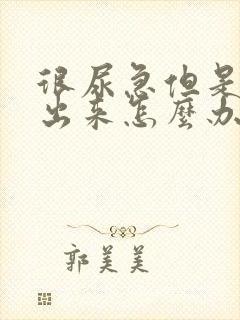 很尿急但是
出来怎麼办
郭美美